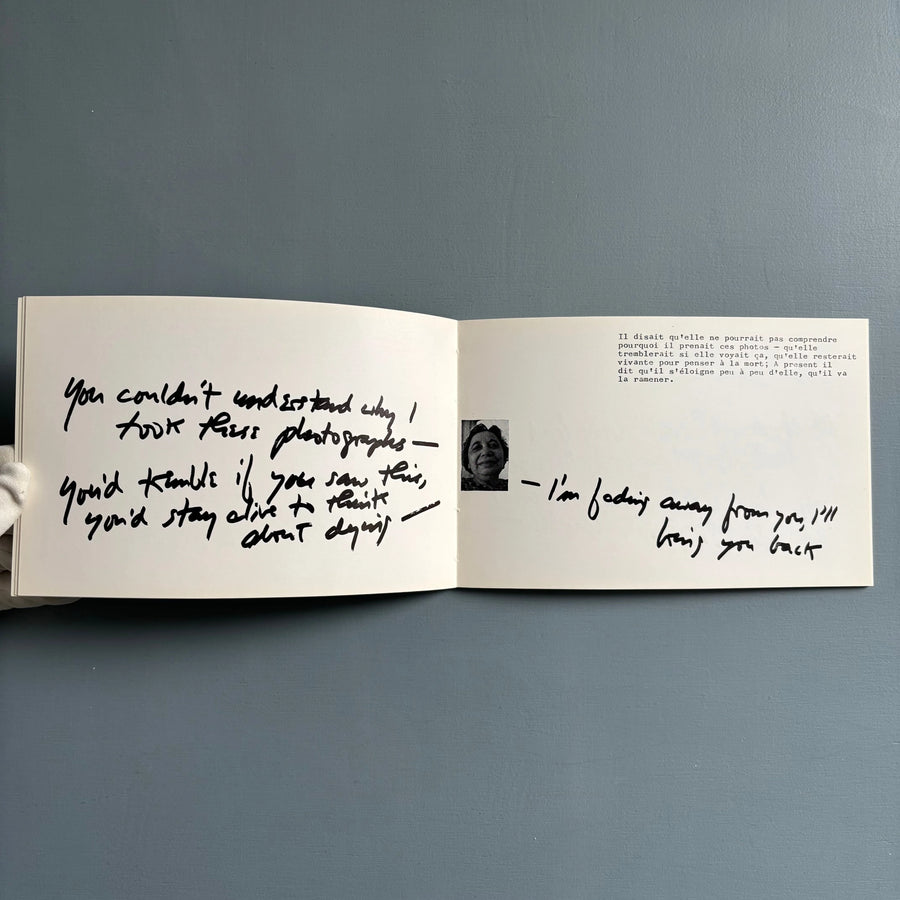 you couldn't understand why I
took these photographs —
you'd tremble if you saw this,
you'd stay alive to think
about dying —
Il disait qu'elle ne pourrait pas comprendre
pourquoi il prenait ces photos — qu'elle
tremblerait si elle voyait ça, qu'elle resterait
vivante pour penser à la mort; A present il
dit qu'il s'éloigne peu à peu d'elle, qu'il va
la ramener.
— I'm fading away from you, I'll
bring you back